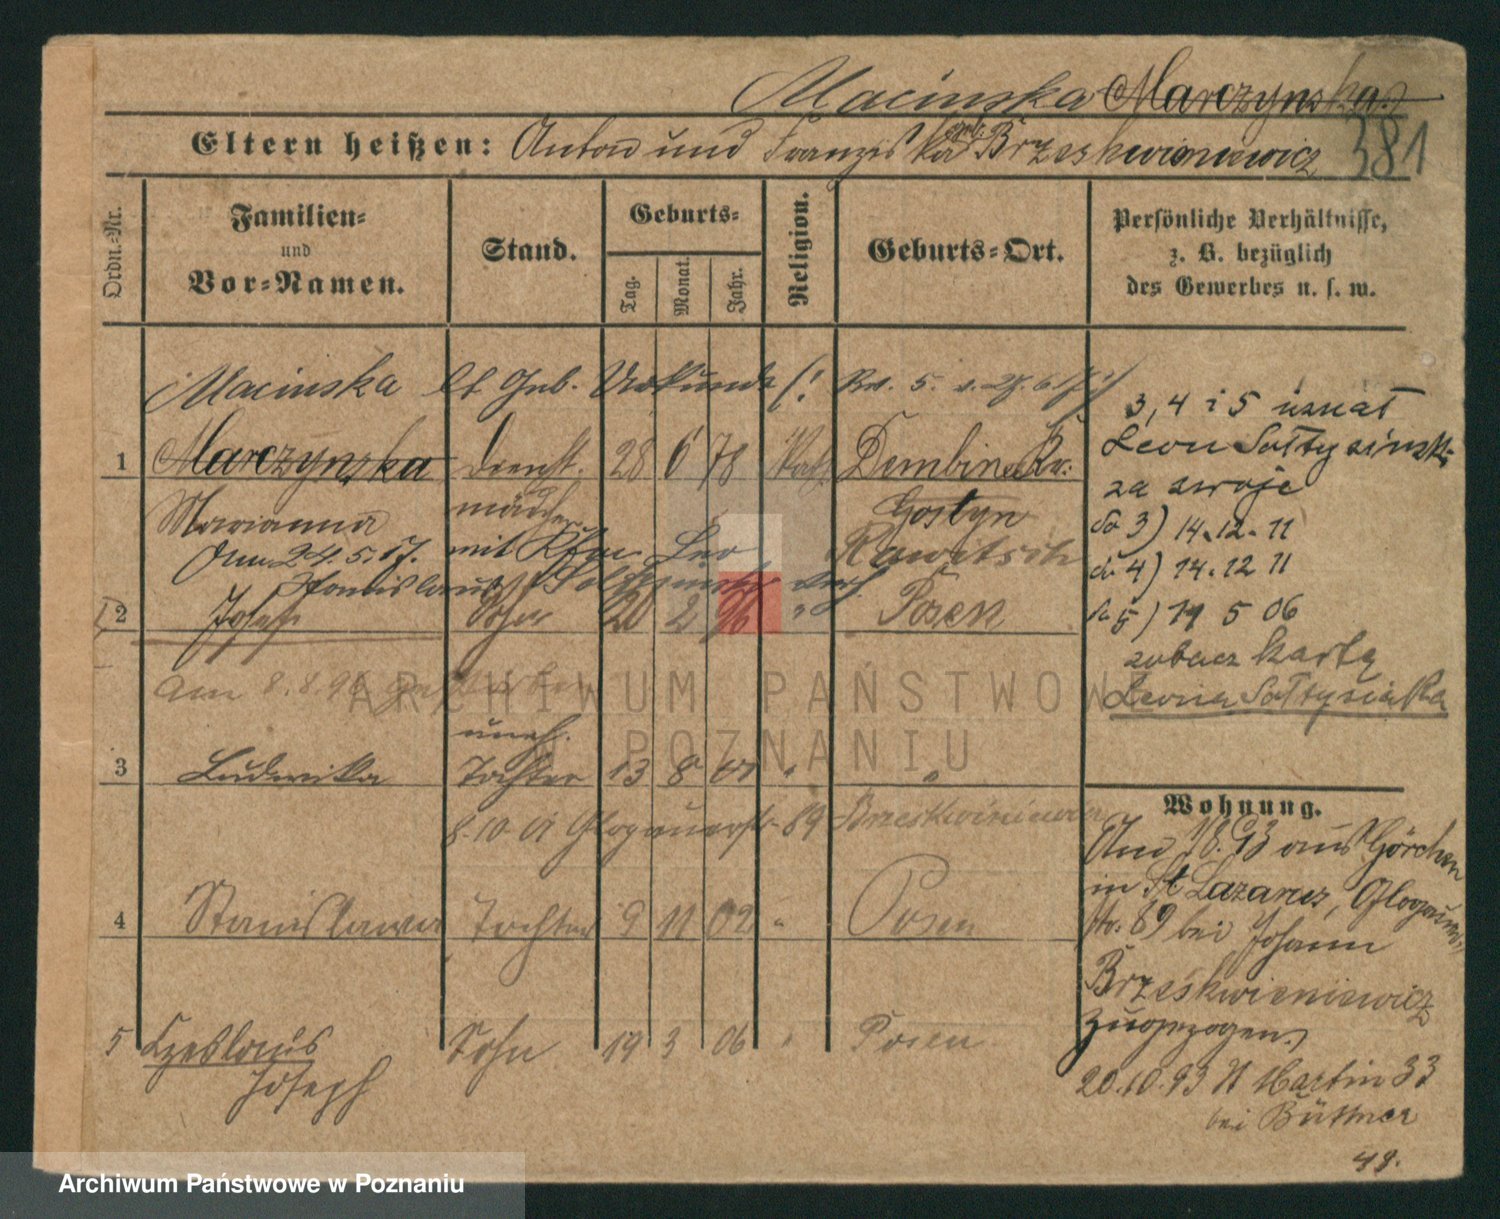 Macinska Marczynska
Eltern heißen: Anton und Franziska geb. Brzeskwieniewicz 381
Ordn.-Nr.
Familien-
und
Vor-Namen.
Stand.
Geburts-
Tag.
Monat.
Jahr.
Religion.
Geburts-Ort.
Persönliche Verhältnisse,
z. B. bezüglich
des Gewerbes u. s. w.
Macinska lt Geb. Urkunde
1 Marczynska Dienst- 28 6 78 Kath. Dembina Kr.
mädchen Gostyn
Marianna
Am 24.5.17. mit Leo Rawitsch
Stanislaus
2 Josef Sohn 20 2 96 " Posen
am 8.8.96 gestorben
uneh.
3 Ludwika Tochter 13 8 01 " "
8.10.01 Glogauerstr. 89 Brzeskwieniewicz
4 Stanislawa Tochter 9 11 02 " Posen
5 Czeslaus Sohn 19 3 06 " Posen
Joseph
3, 4 i 5 uznał
Leon Sołtysiński
za swoje
do 3) 14.12.11
do 4) 14.12 11
do 5) 19 5 06
zobacz kartę
Leona Sołtysiaka
Wohnung.
Am 93 aus Görchen
in St Lazarus, Glogauer
str. 89 bei Johann
Brzeskwieniewicz
zugezogen
20.10.93 St. Martin 33
bei Büttner
49.
ARCHIWUM PAŃSTWOWE
W POZNANIU
Archiwum Państwowe w Poznaniu